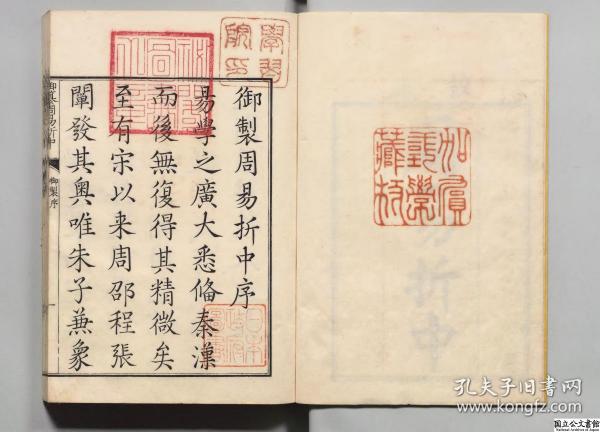 御製周易折中序
易學之廣大悉備秦漢
而後無復得其精微矣
至有宋以来周邵程張
闡發其奧唯朱子兼象
御纂周易折中
御製序
一
學習院印
日本政府圖書
易折中
孔夫子旧书网
www.kongfz.com
国立公文書館
National Archives of Japan